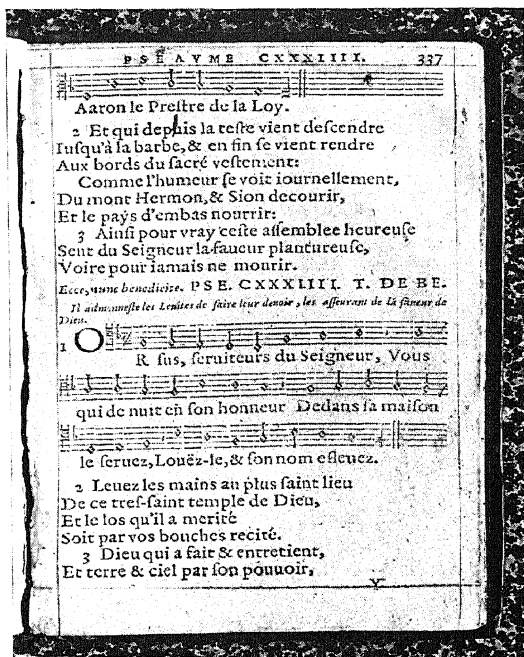 PSEAVME CXXXIIII. 337
Aaron le Prestre de la Loy.
2 Et qui depuis la teste vient descendre
Iusqu'à la barbe, & en fin se vient rendre
Aux bords du sacré vestement:
Comme l'humeur se voit iournellement,
Du mont Hermon, & Sion decourir,
Et le pays d'embas nourrir:
3 Ainsi pour vray ceste assemblee heureuse
Sent du Seigneur la faueur plantureuse,
Voire pour iamais ne mourir.
Ecce, nunc benedicite. PSE. CXXXIIII. T. DE BE.
Il admonneste les Leuites de faire leur deuoir, les asseurant de la faueur de
Dieu.
1 OR sus, seruiteurs du Seigneur, Vous
qui de nuit en son honneur Dedans sa maison
le seruez, Louëz-le, & son nom esleuez.
2 Leuez les mains au plus saint lieu
De ce tres-saint temple de Dieu,
Et le los qu'il a merité
Soit par vos bouches recité.
3 Dieu qui a fait & entretient,
Et terre & ciel par son pouuoir,
Y